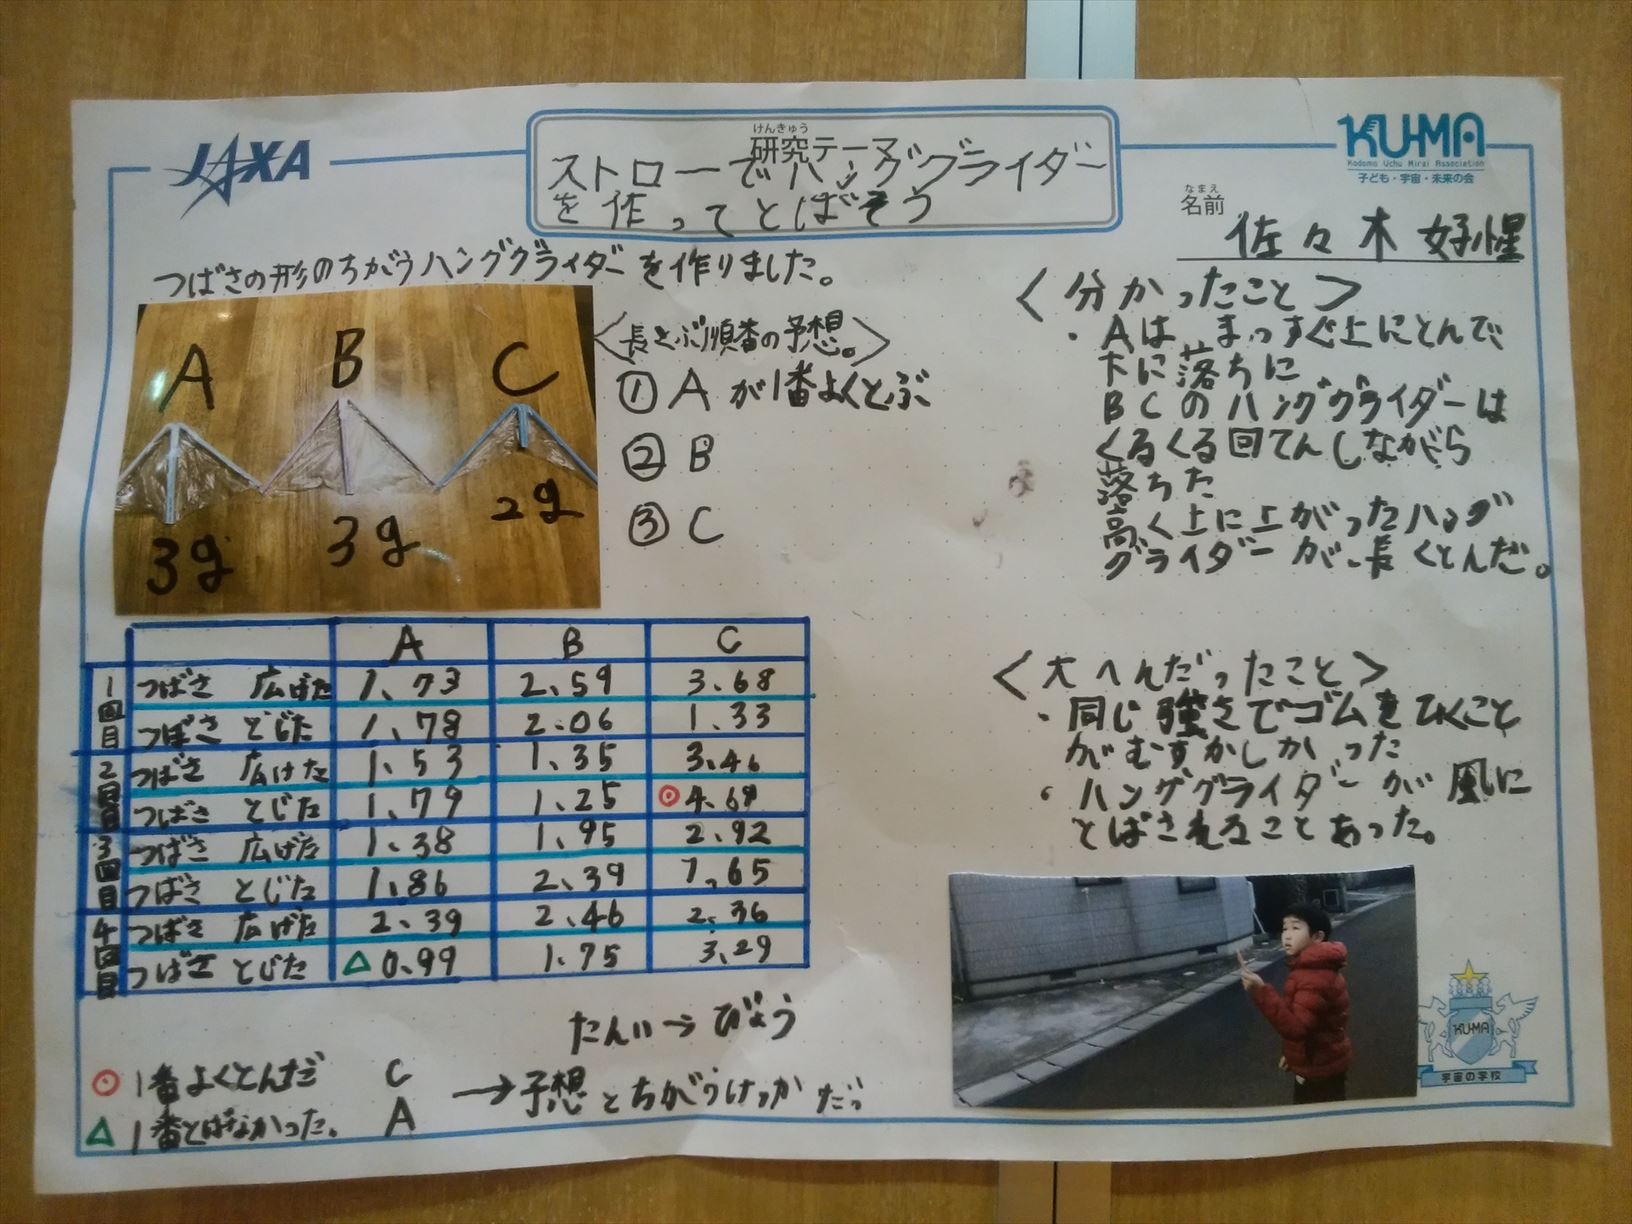 JAXA
けんきゅう
研究テーマ
ストローでハンググライダー
を作ってとばそう
KU-MA
Kodomo Uchu Mirai Association
子ども・宇宙・未来の会
なまえ
名前
佐々木 好惺
つばさの形のちがうハンググライダーを作りました。
A B C
3g 3g 2g
<長とぶ順番の予想。>
① Aが1番よくとぶ
② B
③ C
A B C
1回目 つばさ 広げた 1、73 2、59 3.68
つばさ とじた 1、78 2.06 1.33
2回目 つばさ 広げた 1、53 1、35 3.46
つばさ とじた 1、79 1、25 ◎4.69
3回目 つばさ 広げた 1、38 1、95 2、92
つばさ とじた 1、86 2、39 1、65
4回目 つばさ 広げた 2、39 2、46 2、36
つばさ とじた △0、99 1、75 3、29
たんい→びょう
◎ 1番よくとんだ C
△ 1番とばなかった。 A
→予想とちがうけっかだっ
<分かったこと>
・Aは、まっすぐ上にとんで、
下に落ちに
BCのハンググライダーは
くるくる回てんしながら
落ちた
高く上に上がったハング
グライダーが、長くとんだ。
<大へんだったこと>
・同じ強さでゴムをひくこと
がむずかしかった
・ハンググライダーが風に
とばされることあった。
KU-MA
宇宙の学校